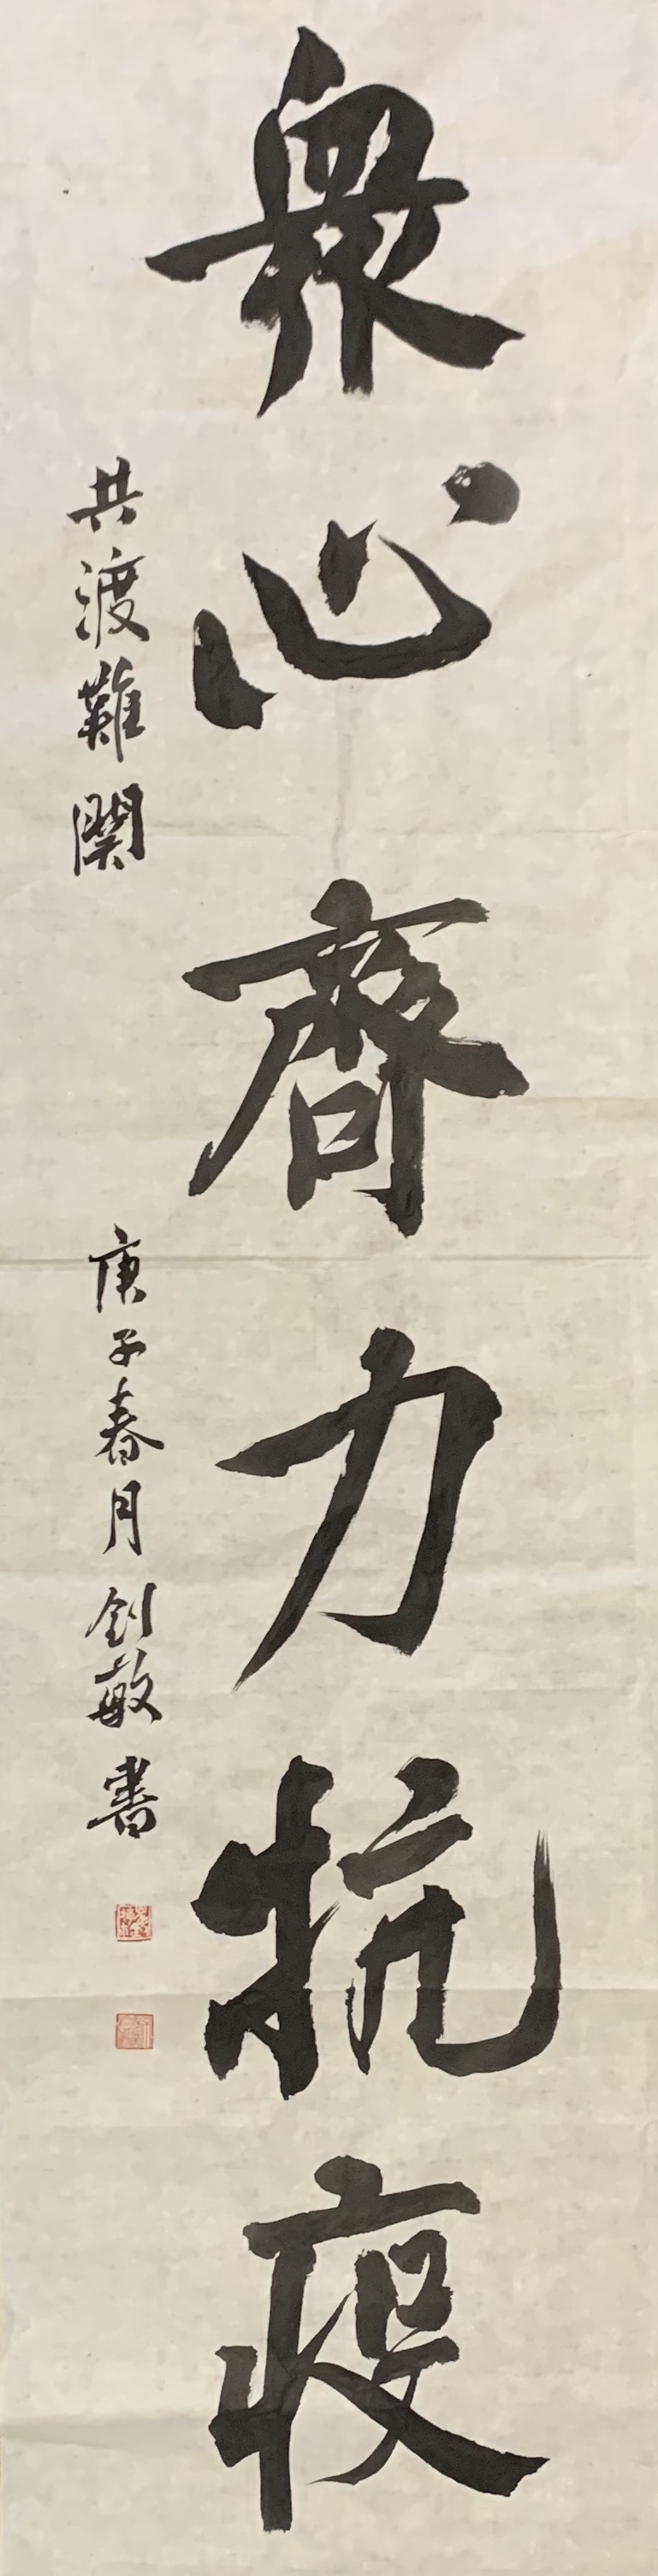 眾心齊力抗疫
共渡難關
庚子春月釗敏書